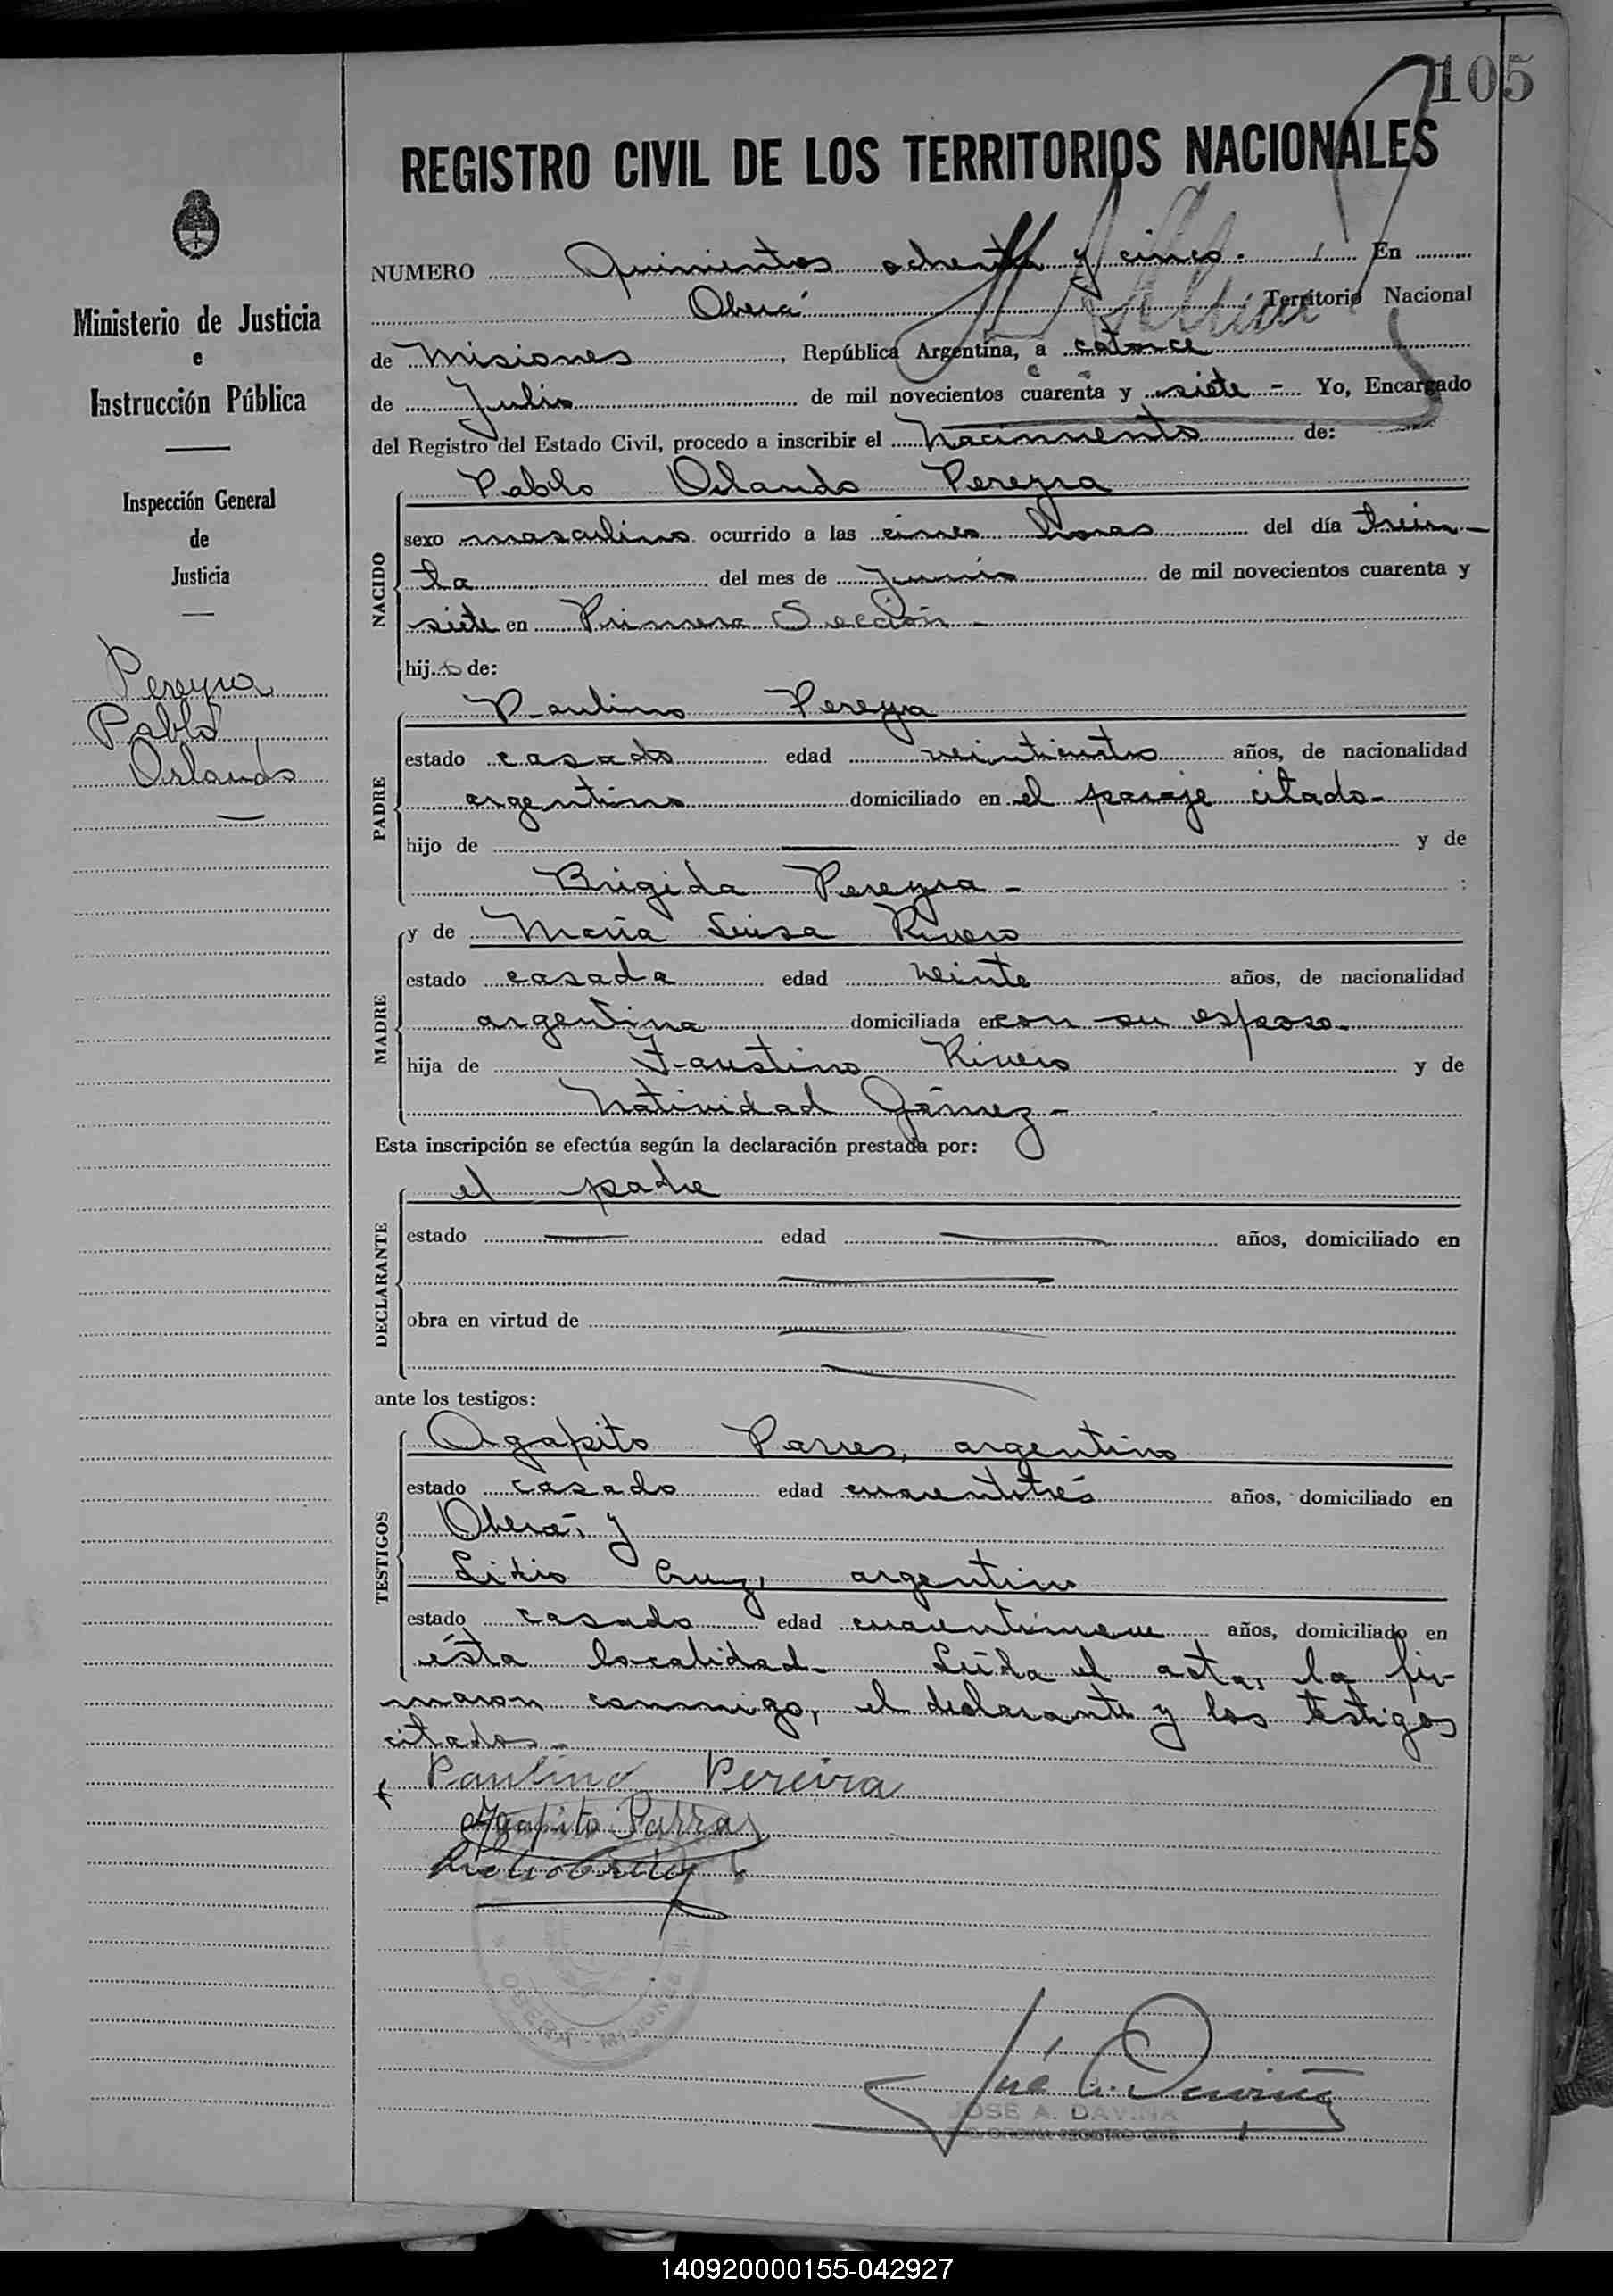 105
REGISTRO CIVIL DE LOS TERRITORIOS NACIONALES
NUMERO Quinientos ochenta y cinco. En
Oberá Territorio Nacional
de Misiones, República Argentina, a catorce
de Julio de mil novecientos cuarenta y siete - Yo, Encargado
del Registro del Estado Civil, procedo a inscribir el Nacimiento de:
NACIDO
Pablo Orlando Pereyra
sexo masculino ocurrido a las cinco horas del día trein-
ta del mes de Junio de mil novecientos cuarenta y
siete en Primera Sección -
hijo de:
PADRE
Paulino Pereyra
estado casado edad años, de nacionalidad
argentino domiciliado en el paraje citado-
hijo de — y de
Brigida Pereyra -
MADRE
y de María Luisa Rivero
estado casada edad veinte años, de nacionalidad
argentina domiciliada en con su esposo-
hija de Faustino Rivero y de
Natividad Gómez -
Esta inscripción se efectúa según la declaración prestada por:
DECLARANTE
el padre
estado — edad — años, domiciliado en
—
obra en virtud de —
—
ante los testigos:
TESTIGOS
Agapito Parres, argentino
estado casado edad cuarentitrés años, domiciliado en
Oberá; y
Lidio Cruz, argentino
estado casado edad cuarentinueve años, domiciliado en
ésta localidad- Leída el acta, la fir-
maron conmigo, el declarante y los testigos
citados.-
Paulino Pereira
Agapito Parras
José A. Daviña
JOSE A. DAVIÑA
OBERA - MISIONES
Ministerio de Justicia
e
Instrucción Pública
Inspección General
de
Justicia
Pereyra
Pablo
Orlando
—
140920000155-042927